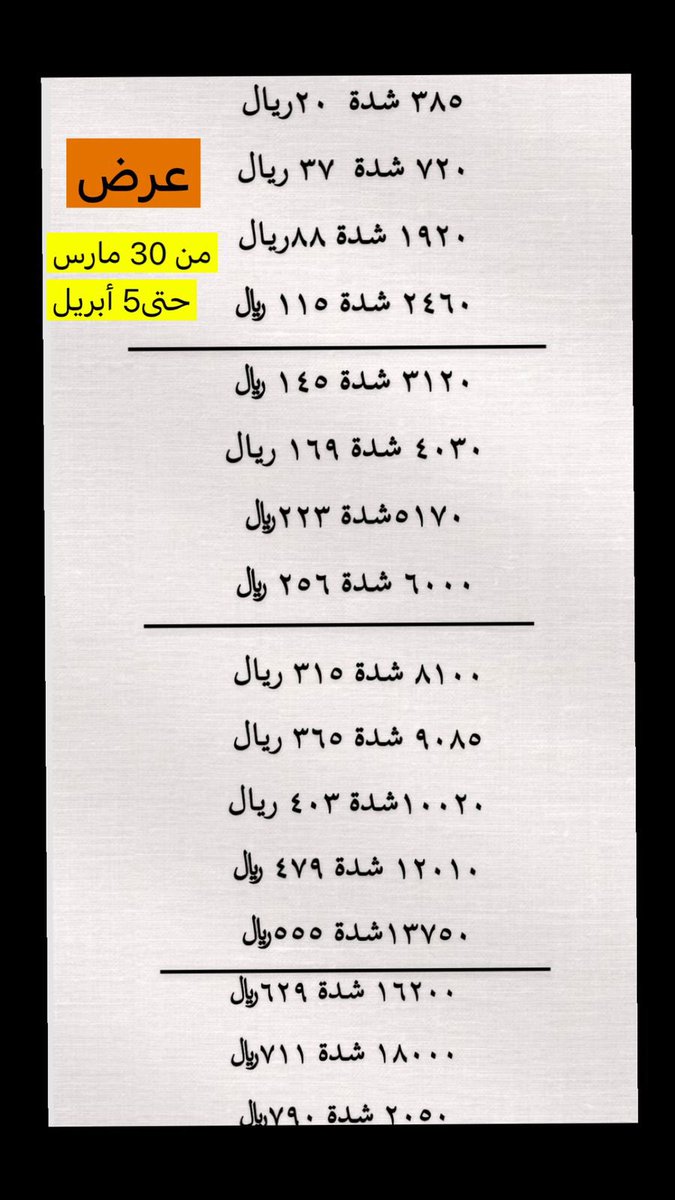 ٣٨٥ شدة ٢٠ريال
عرض
٧٢٠ شدة ٣٧ ريال
١٩٢٠ شدة ٨٨ريال
من 30 مارس
حتى5 أبريل
٢٤٦٠ شدة ١١٥ ريال
٣١٢٠ شدة ١٤٥ ريال
٤٠٣٠ شدة ١٦٩ ريال
٥١٧٠شدة ٢٢٣ريال
٦٠٠٠ شدة ٢٥٦ ريال
٨١٠٠ شدة ٣١٥ ريال
٩٠٨٥ شدة ٣٦٥ ريال
١٠٠٢٠شدة ٤٠٣ ريال
١٢٠١٠ شدة ٤٧٩ ريال
١٣٧٥٠شدة ٥٥٥ريال
١٦٢٠٠ شدة ٦٢٩ريال
١٨٠٠٠ شدة ٧١١ريال
٢٠٥٠ شدة ٧٩٠ريال